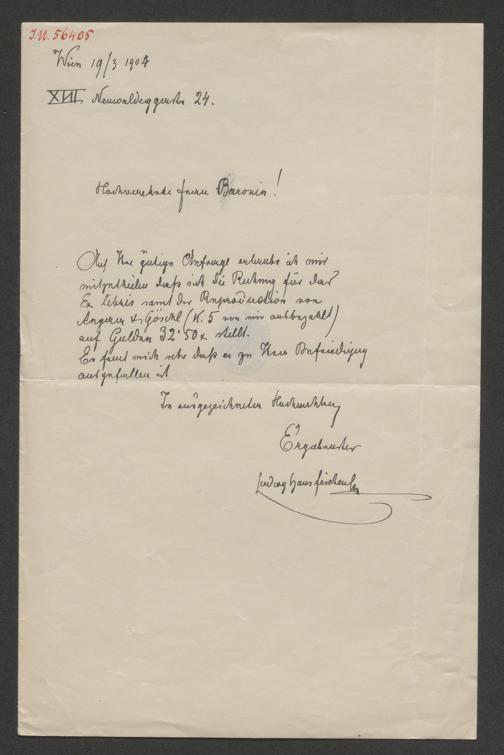 I.N. 56405
Wien 19/3 1904
XVII. Neuwaldeggerstr 24.
Hochverehrte Frau Baronin!
Auf Ihre gütige Anfrage erlaube ich mir
mitzutheilen daß sich die Rechnung für das
Ex libris samt der Reproduction von
Angerer & Göschl (K. 5 von mir ausbezahlt)
auf Gulden 32·50 x stellt.
Es freut mich sehr daß es zu Ihrer Befriedigung
ausgefallen ist
In ausgezeichneter Hochachtung
Ergebenster
Ludwig Hans Fischer